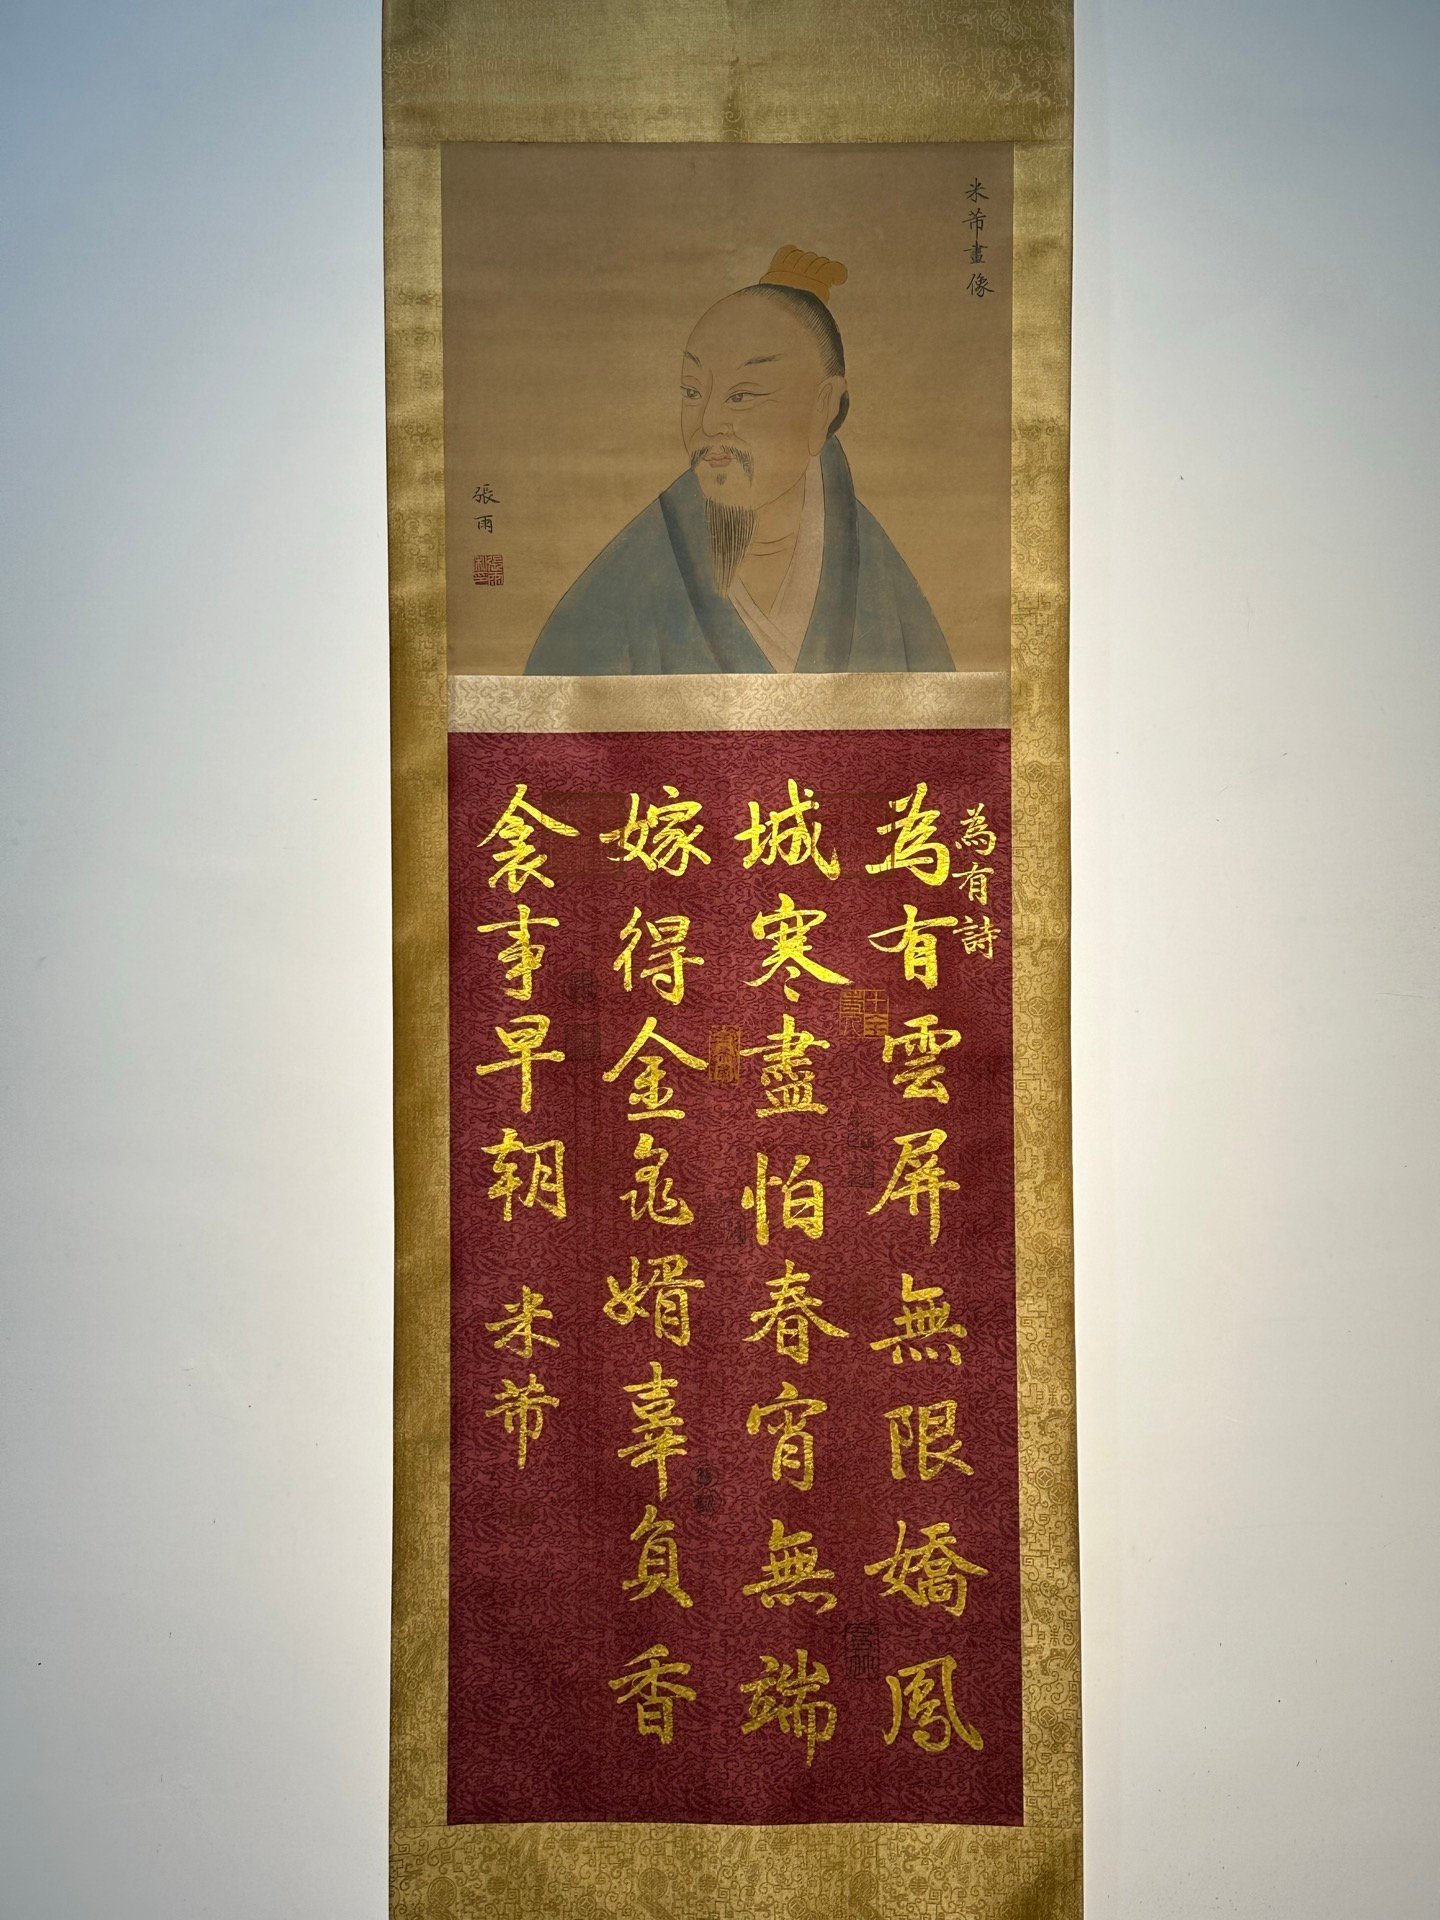 米芾畫像
張雨
為有詩
為有雲屏無限嬌鳳
城寒盡怕春宵無端
嫁得金龜婿辜負香
衾事早朝 米芾